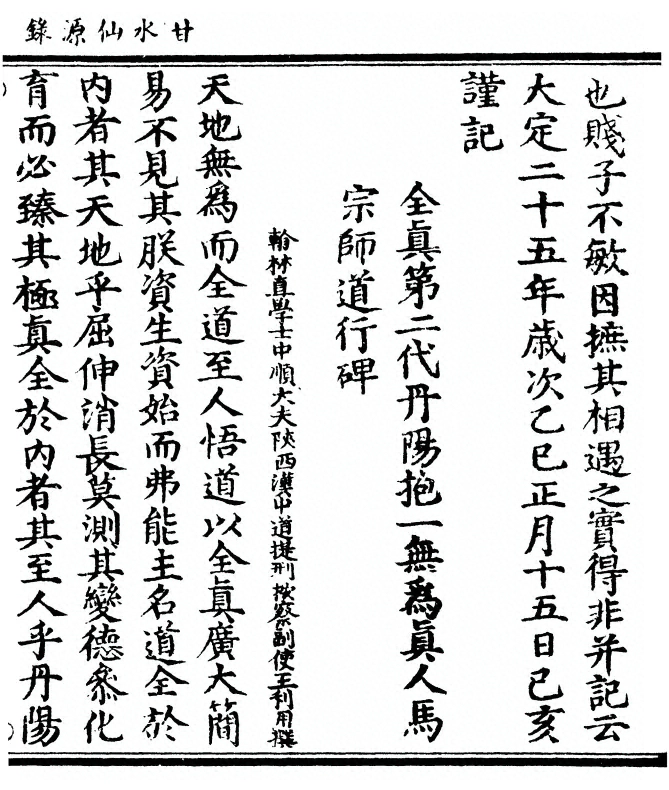 甘水仙源錄
也賤子不敏因摭其相遇之實得非并記云
大定二十五年歲次乙巳正月十五日己亥
謹記
全眞第二代丹陽抱一無爲眞人馬
宗師道行碑
翰林直學士中順大夫陝西漢中道提刑按察副使王利用撰
天地無爲而全道至人悟道以全眞廣大簡
易不見其朕資生資始而弗能主名道全於
內者其天地乎屈伸消長莫測其變德叅化
育而必臻其極眞全於內者其至人乎丹陽